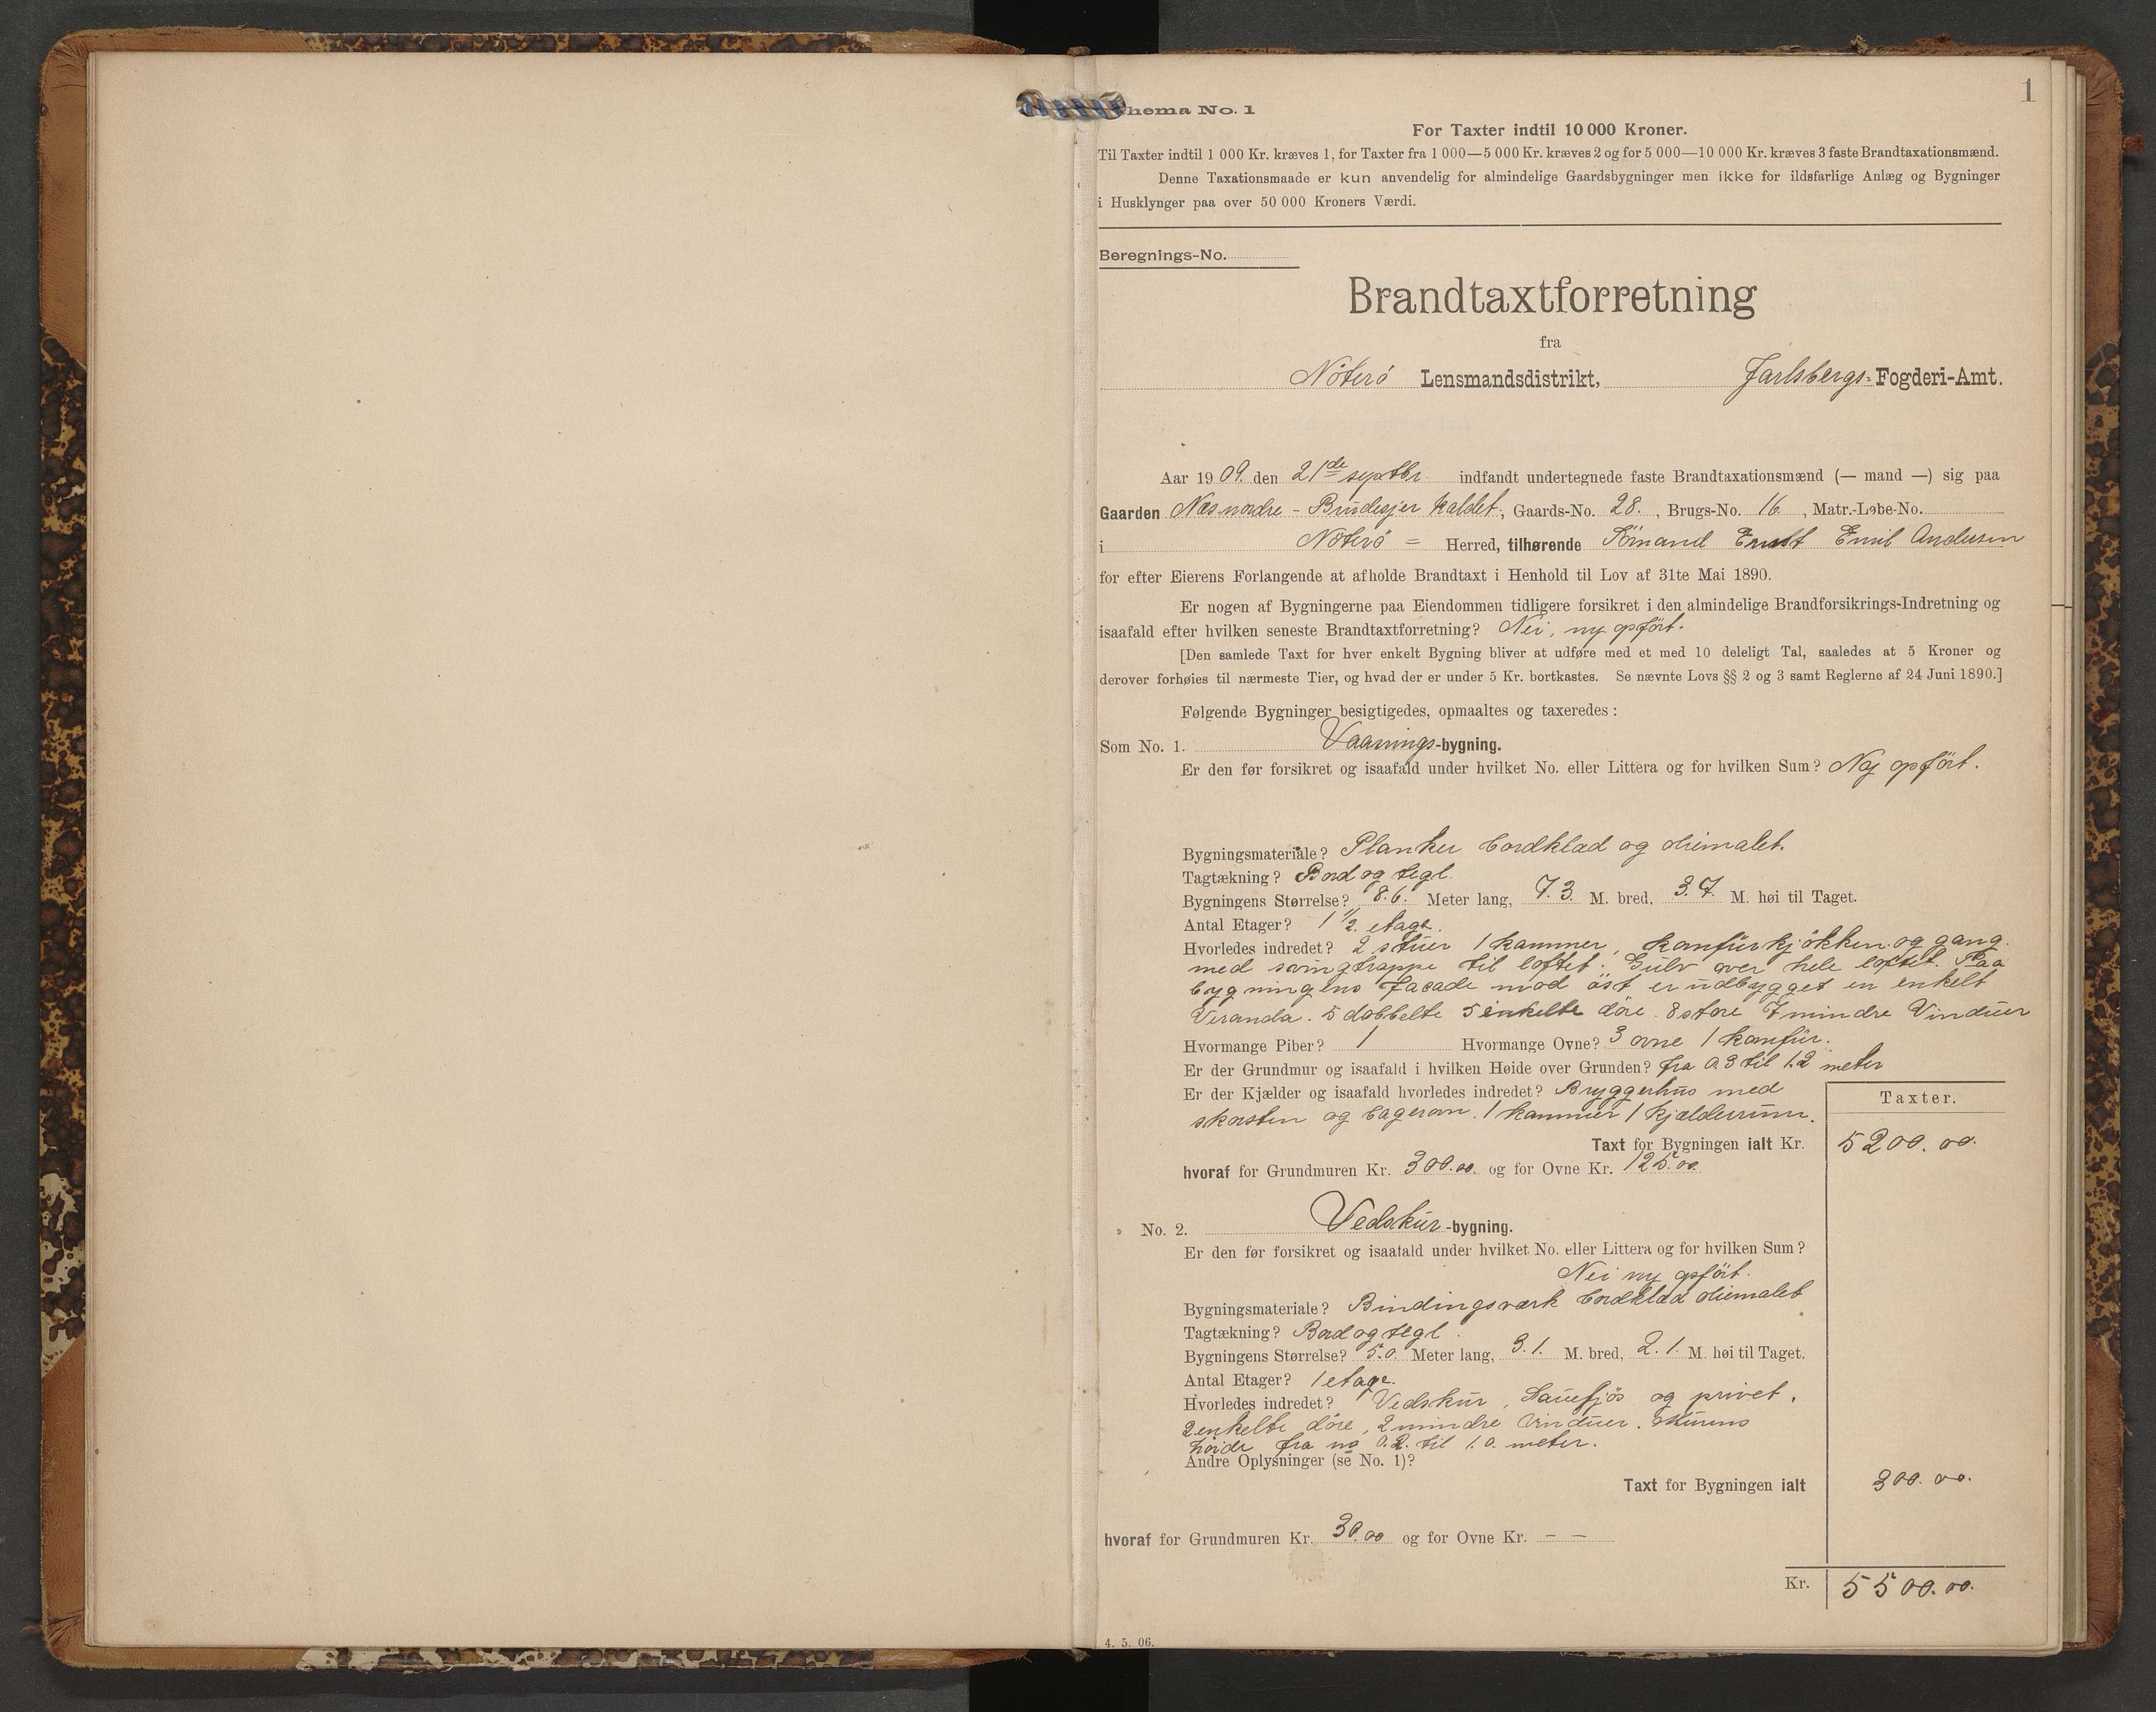 1
hema No. 1
For Taxter indtil 10 000 Kroner.
Til Taxter indtil 1 000 Kr. kræves 1, for Taxter fra 1 000—5 000 Kr. kræves 2 og for 5 000—10 000 Kr. kræves 3 faste Brandtaxationsmænd.
Denne Taxationsmaade er kun anvendelig for almindelige Gaardsbygninger men ikke for ildsfarlige Anlæg og Bygninger
i Husklynger paa over 50 000 Kroners Værdi.
Beregnings-No.
Brandtaxtforretning
fra
Nöterö Lensmandsdistrikt, Jarlsbergs Fogderi-Amt.
Aar 1909. den 21de septbr. indfandt undertegnede faste Brandtaxationsmænd (— mand —) sig paa
Gaarden Næs nordre - kaldet, Gaards-No. 28. , Brugs-No. 16 , Matr.-Løbe-No.
i Nöterö = Herred, tilhørende Sömand Ernst Emil Andersen
for efter Eierens Forlangende at afholde Brandtaxt i Henhold til Lov af 31te Mai 1890.
Er nogen af Bygningerne paa Eiendommen tidligere forsikret i den almindelige Brandforsikrings-Indretning og
isaafald efter hvilken seneste Brandtaxtforretning? Nei, ny opfört.
[Den samlede Taxt for hver enkelt Bygning bliver at udføre med et med 10 deleligt Tal, saaledes at 5 Kroner og
derover forhøies til nærmeste Tier, og hvad der er under 5 Kr. bortkastes. Se nævnte Lovs §§ 2 og 3 samt Reglerne af 24 Juni 1890.]
Følgende Bygninger besigtigedes, opmaaltes og taxeredes:
Som No. 1. Vaanings-bygning.
Er den før forsikret og isaafald under hvilket No. eller Littera og for hvilken Sum? Ny opfört.
Bygningsmateriale? Planker bordklæd og oliemalet.
Tagtækning? Bord og tegl.
Bygningens Størrelse? 8.6. Meter lang, 7.3. M. bred, 3.7. M. høi til Taget.
Antal Etager? 1 1/2. etage.
Hvorledes indredet? 2 stuer 1 kammer, komfürkjökken og gang.
med svingtrappe til loftet. Gulv over hele loftet. Paa
bygningens facade mod öst er udbygget en enkelt
Veranda. 5 dobbelte 5 enkelte döre. 8 store 7 mindre Vinduer
Hvormange Piber? 1 Hvormange Ovne? 3 ovne 1 komfür.
Er der Grundmur og isaafald i hvilken Høide over Grunden? fra 0.3 til 1.2 meter
Er der Kjælder og isaafald hvorledes indredet? Bryggerhus med
skorsten og bagerovn. 1 kammer 1 kjælderrum.
Taxter.
Taxt for Bygningen ialt Kr. 5200.00.
hvoraf for Grundmuren Kr. 300.00. og for Ovne Kr. 125.00
» No. 2. Vedskur-bygning.
Er den før forsikret og isaafald under hvilket No. eller Littera og for hvilken Sum?
Nei ny opfört.
Bygningsmateriale? Bindingsværk bordklæd oliemalet
Tagtækning? Bord og tegl.
Bygningens Størrelse? 5.0. Meter lang, 3.1. M. bred, 2.1. M. høi til Taget.
Antal Etager? 1 etage.
Hvorledes indredet? Vedskur, Sauefjös og privet.
2 enkelte döre, 2 mindre Vinduer. Murens
höide fra 0.2. til 1.0. meter.
Andre Oplysninger (se No. 1)?
Taxt for Bygningen ialt 300.00.
hvoraf for Grundmuren Kr. 30.00 og for Ovne Kr. — —
Kr. 5500.00.
4. 5. 06.